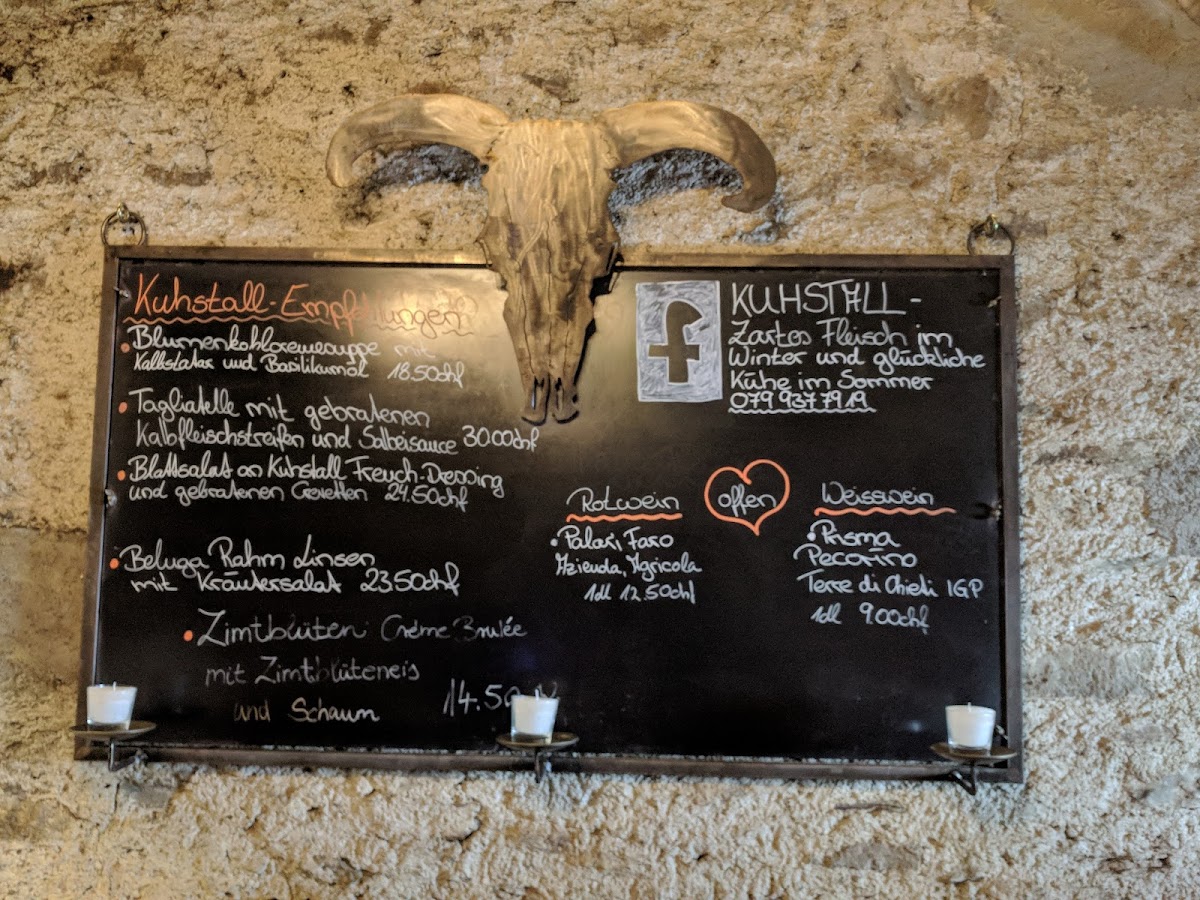 Kuhstall-Empfehlungen
• Blumenkohlcremesuppe mit
Kalbstatar und Basilikumöl 18.50chf
• Tagliatelle mit gebratenen
Kalbfleischstreifen und Salbeisauce 30.00chf
• Blattsalat an Kuhstall French-Dressing
und gebratenen Crevetten 24.50chf
• Beluga Rahm Linsen
mit Kräutersalat 23.50chf
• Zimtblüten Crème Brulée
mit Zimtblüteneis
und Schaum 14.50
f
KUHSTALL -
Zartes Fleisch im
Winter und glückliche
Kühe im Sommer
079 937 79 19
Rotwein
• Palari Faro
Azienda, Agricola
1dl 12.50chf
offen
Weisswein
• Prisma
Pecorino
Terre di Chieti IGP
1dl 9.00chf